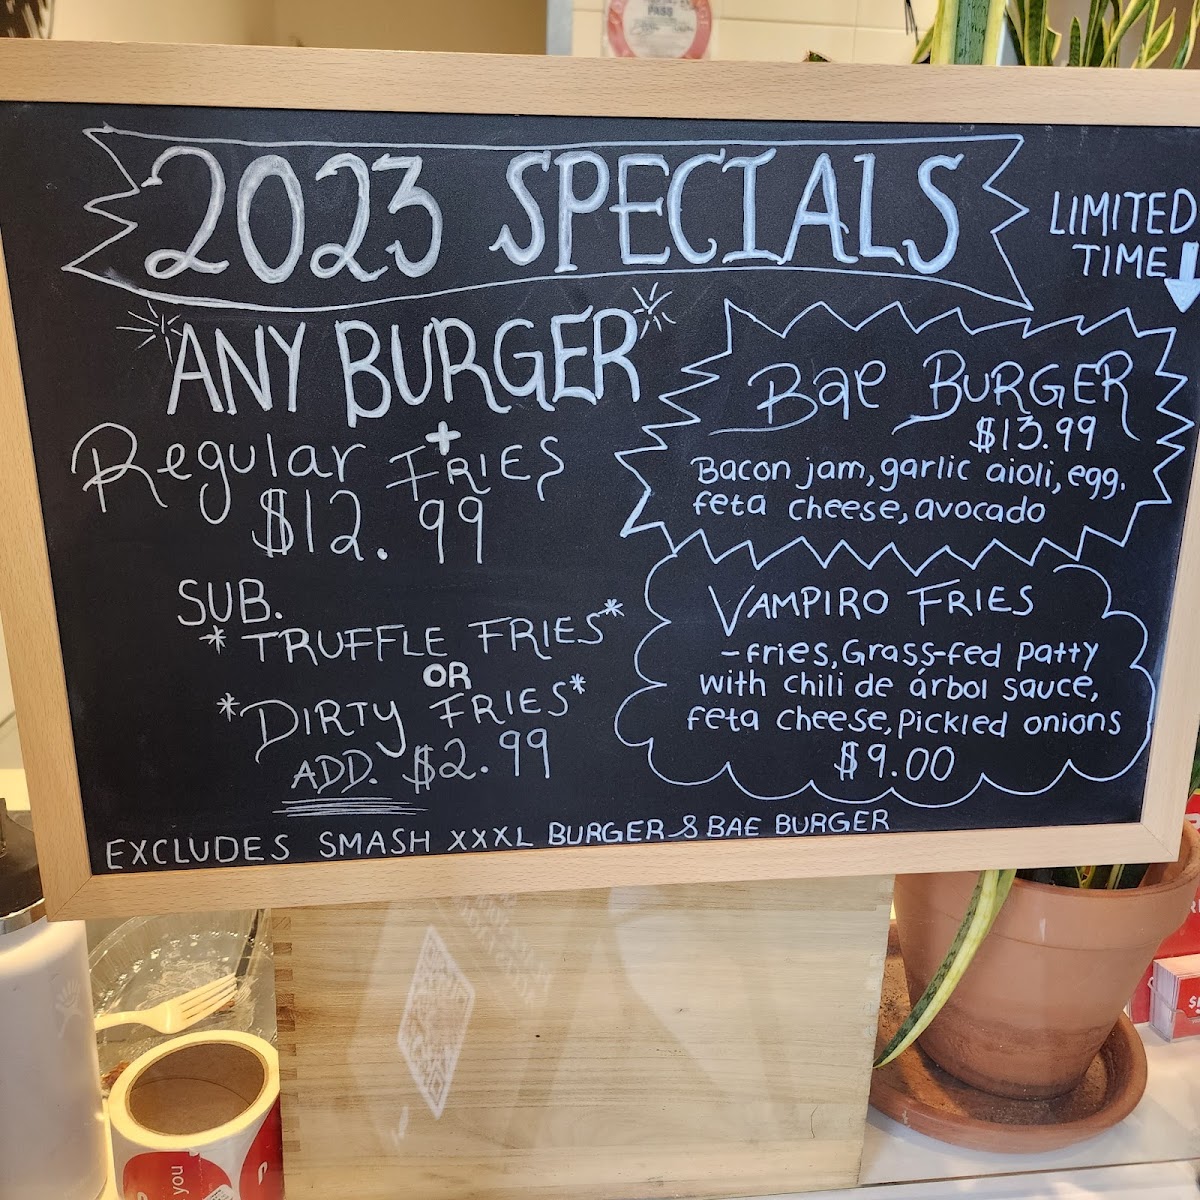 PASS
2023 SPECIALS
LIMITED
TIME
ANY BURGER
+
Regular FRIES
$12.99
SUB.
*TRUFFLE FRIES*
OR
*DIRTY FRIES*
ADD. $2.99
Bae BURGER
$13.99
Bacon jam, garlic aioli, egg,
feta cheese, avocado
VAMPIRO FRIES
- fries, Grass-fed patty
with chili de árbol sauce,
feta cheese, pickled onions
$9.00
EXCLUDES SMASH XXXL BURGER & BAE BURGER
you